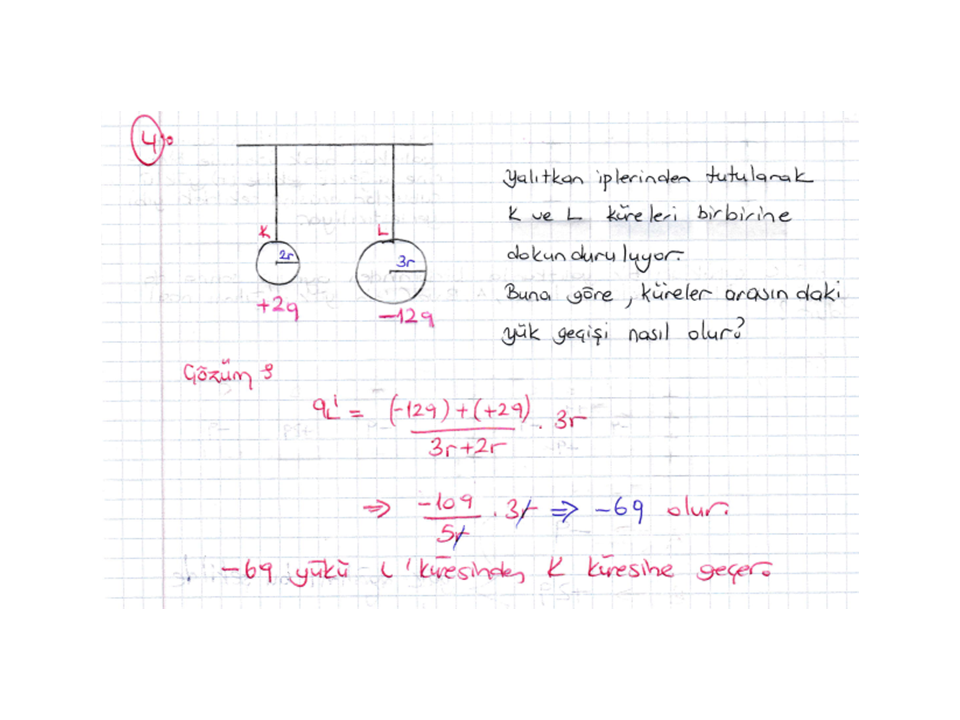 4)
K
L
2r
3r
+2q
-12q
Yalıtkan iplerinden tutularak
K ve L küreleri birbirine
dokunduruluyor.
Buna göre, küreler arasındaki
yük geçişi nasıl olur?
Çözüm :
qL' = (-12q)+(+2q) / 3r+2r . 3r
⇒ -10q / 5r . 3r ⇒ -6q olur.
-6q yükü L küresinden K küresine geçer.